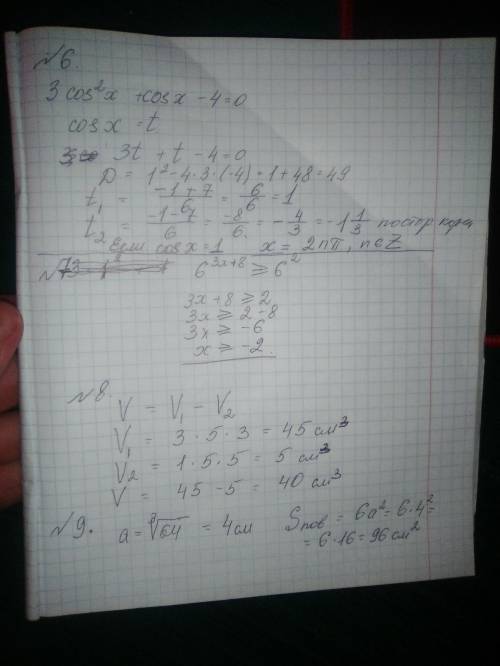 №6.
3cos²x + cosx - 4 = 0
cosx = t
3t + t - 4 = 0
D = 1² - 4·3·(-4) = 1 + 48 = 49
t₁ = (-1+7)/6 = 6/6 = 1
t₂ = (-1-6)/6 = -8/6 = -4/3 = -1 1/3 постор корень
Если cosx = 1 x = 2πn, n∈Z
№7 6^(3x+8) ⩾ 6²
3x + 8 ⩾ 2
3x ⩾ 2 - 8
3x ⩾ -6
x ⩾ -2.
№8.
V = V₁ - V₂
V₁ = 3 · 5 · 3 = 45 см³
V₂ = 1 · 5 · 5 = 5 см³
V = 45 - 5 = 40 см³
№9. a = ³√64 = 4см Sпов = 6a² = 6·4² =
= 6·16 = 96см²